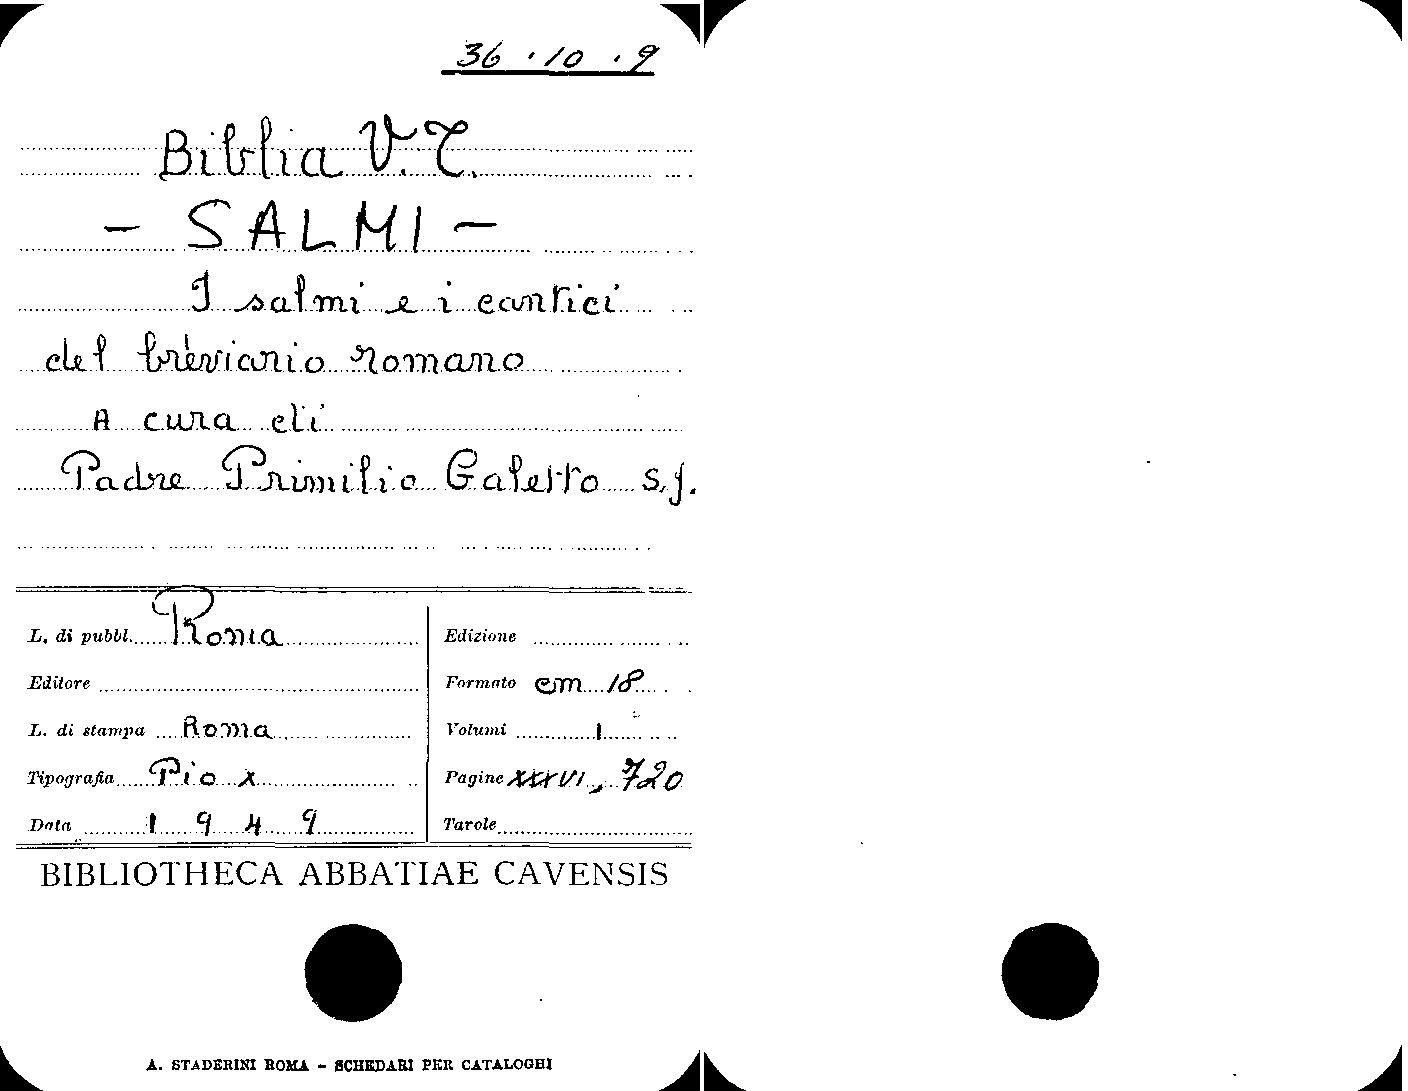 36.10.9
Biblia V.T.
- SALMI -
I salmi e i cantici
del breviario romano
A cura di
Padre Primilio Galetto s.j.
L. di pubbl. Roma
Editore
L. di stampa Roma
Tipografia Pio X
Data 1949
Edizione
Formato cm 18
Volumi 1
Pagine XXXVI, 720
Tavole
BIBLIOTHECA ABBATIAE CAVENSIS
A. STADERINI ROMA - SCHEDARI PER CATALOGHI